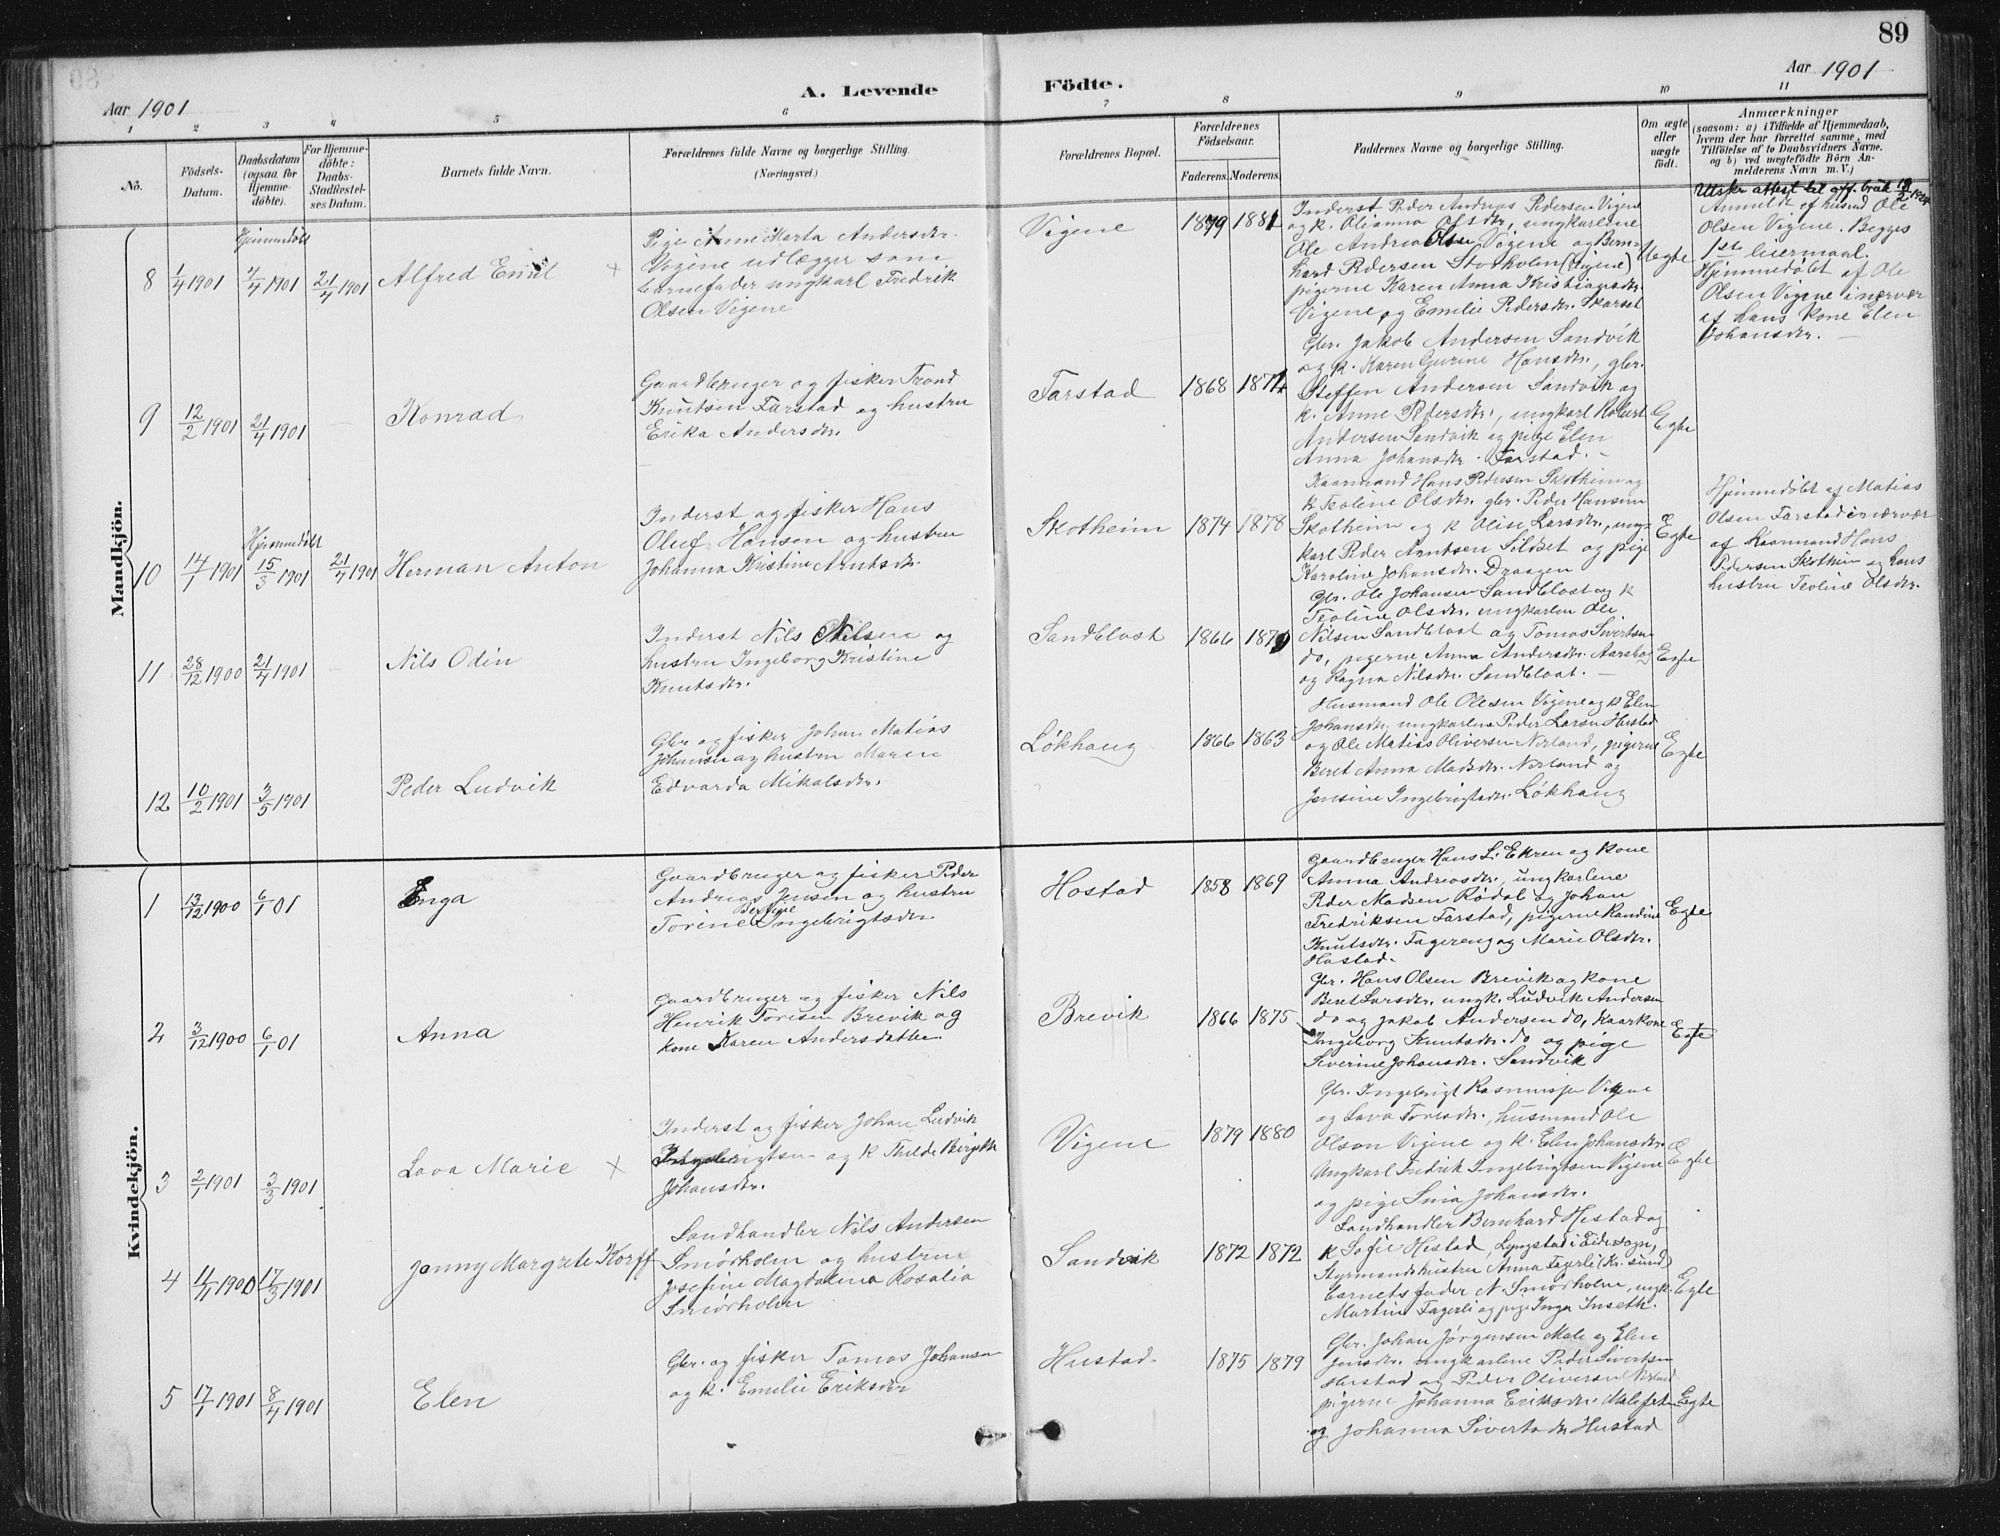 89
Aar 1901
A. Levende
Födte.
Aar 1901
1 2 3 4 5 6 7 8 9 10 11
No.
Födsels-
Datum.
Daabsdatum
(ogsaa for
Hjemme-
döbte).
For Hjemme-
döbte:
Daabs-
Stadfæstel-
ses Datum.
Barnets fulde Navn.
Forældrenes fulde Navne og borgerlige Stilling.
(Næringsvei.)
Forældrenes Bopæl.
Forældrenes
Födselsaar.
Faderens. Moderens.
Faddernes Navne og borgerlige Stilling.
Om ægte
eller
uægte
födt.
Anmærkninger
(saasom: a) i Tilfælde af Hjemmedaab,
hvem der har forrettet samme, med
Tilföielse af to Daabsvidners Navne.
og b) ved uægtefödte Börn An-
melderens Navn m. V.)
Mandkjön.
8 1/4 1901
Hjemmedöbt
7/4 1901
21/4 1901
Alfred Emil
Pige Anne Marta Andersdtr.
Vigene udlægger som
barnefader ungkarl Fredrik
Olsen Vigene
Vigene
1879 1881
Inderst Peder Andreas Pedersen Vigene
og k. Olianna Olsdtr., ungkarlene
Ole Andreas Olsen Vigene og Bern-
hard Pedersen Storholm (Vigene)
pigerne Karen Anna Kristiansdtr.
Vigene og Emilie Pedersdtr. Skarset
Uegte
Utskr. attest til off. bruk
Anmeldt af husmd Ole
Olsen Vigene. Begges
1st leiermaal.
Hjemmedöbt af Ole
Olsen Vigene i nærvær
af hans kone Elen
Johansdtr.
9 12/2 1901 21/4 1901
Konrad
Gaardbruger og fisker Trond
Knutsen Farstad og hustru
Erika Andersdtr.
Farstad
1868 1874
Gbr. Jakob Andersen Sandvik
og k. Karen Gurine Hansdtr., gbr.
Steffen Andersen Sandvik og
k. Anne Pedersdtr., ungkarl Robert
Andersen Sandvik og pige Elen
Anna Johansdtr. Farstad.
Egte
10 14/1 1901
Hjemmedöbt
15/3 1901
21/4 1901
Herman Anton
Inderst og fisker Hans
Oluf Hansen og hustru
Johanna Kristine Arntsdtr.
Skotheim
1874 1878
Kaarmand Hans Pedersen Skotheim og
k Teoline Olsdtr. gbr. Peder Hansen
Skotheim og k Olise Larsdtr., ung-
karl Peder Arntsen Sildset og pige
Karoline Johansdtr. Draagen
Egte
Hjemmedöbt af Matias
Olsen Farstad i nærvær
af Kaarmand Hans
Pedersen Skotheim og hans
hustru Teoline Olsdtr.
11 28/12 1900 21/4 1901
Nils Odin
Inderst Nils Nilsen og
hustru Ingeborg Kristine
Knutsdtr.
Sandblost
1866 1879
Gbr. Ole Johansen Sandblost og k
Teoline Olsdtr. ungkarlen Ole
Nilsen Sandblost og Tomas Sivertsen
do, pigerne Anna Andersdtr. Aarsbog
og Ragna Nilsdtr. Sandblost.
Egte
12 10/2 1901 3/5 1901
Peder Ludvik
Gbr og fisker Johan Matias
Johansen og hustru Maren
Edvarda Mikalsdtr.
Løkhaug
1866 1863
Husmand Ole Olesen Vigene og k Elen
Johansdtr. ungkarlene Peder Larsen Hustad
og Ole Matias Oliversen Nerland, pigerne
Beret Anna Madsdtr. Nerland og
Jensine Ingebrigtsdtr. Løkhaug
Egte
Kvindekjön.
1 13/12 1900 6/1 01
Inga
Gaardbruger og fisker Peder
Andreas Jensen og hustru
Berntine
Torine Ingebrigtsdtr.
Hostad
1858 1869
Gaardbruger Hans L. Ekren og kone
Anna Andreasdtr., ungkarlene
Peder Madsen Rødal og Johan
Fredriksen Farstad, pigerne Randine
Knutsdtr. Fagereng og Marie Olsdtr.
Hostad.
Egte
2 3/12 1900 6/1 01
Anna
Gaardbruger og fisker Nils
Henrik Toresen Brevik og
kone Karen Andersdatter
Brevik
1866 1875
Gbr. Hans Olsen Brevik og kone
Beret Larsdtr. ungk. Ludvik Andersen
do og Jakob Andersen do, kaarkone
Ingeborg Knutsdtr. do og pige
Severine Johansdtr. Sandvik
Egte
3 2/1 1901 3/3 1901
Lava Marie
Inderst og fisker Johan Ludvik
Ingebrigtsen og k Thilde Birgitte
Johansdtr.
Vigene
1879 1880
Gbr. Ingebrigt Rasmussen Vigene
og Lava Toresdtr., husmand Ole
Olsen Vigene og k. Elen Johansdtr.
Ungkarl Fredrik Ingebrigtsen Vigene
og pige Sina Johansdtr.
Egte
4 11/11 1900 17/3 1901
Jenny Margrete Korff
Landhandler Nils Andersen
Smørholm og hustru
Josefine Magdalena Rosalia
Smørholm
Sandvik
1872 1872
Landhandler Bernhard Hestad og
k Sofie Hestad, Lyngstad i Eidesogn,
Styrmandshustru Anna Fagerli (Kr. sund)
barnets fader N. Smørholm, ungk.
Martin Fagerli og pige Inga Inseth.
Egte
5 17/1 1901 8/4 1901
Elen
Gbr. og fisker Tomas Johansen
og k. Emelie Eriksdtr
Hustad
1875 1879
Gbr. Johan Jørgensen Male og Elen
Jonsdtr. ungkarlene Peder Sivertsen
Hustad og Peder Oliversen Nerland
pigerne Johanna Eriksdtr. Malefeten
og Johanna Sivertsdtr Hustad
Egte